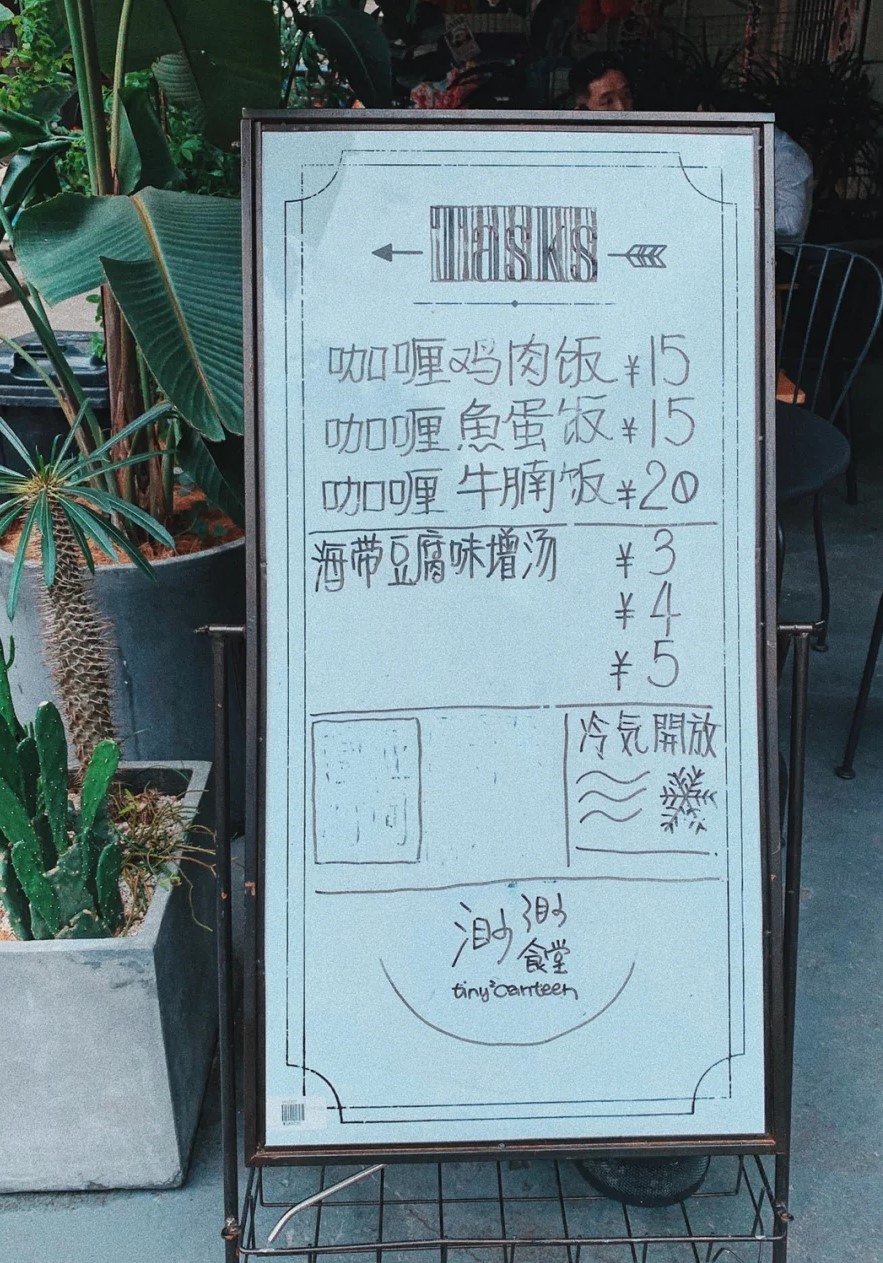 Tasks
咖喱鸡肉饭 ¥15
咖喱魚蛋饭 ¥15
咖喱牛腩饭 ¥20
海带豆腐味增汤 ¥3
¥4
¥5
冷气開放
渺渺
食堂
tiny²canteen